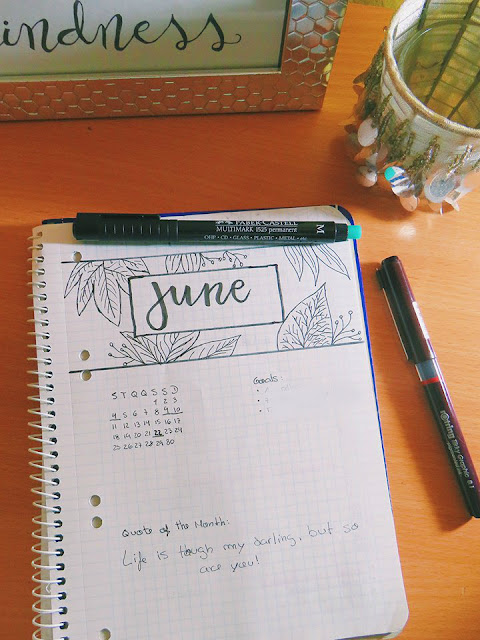 kindness
FABER-CASTELL M
MULTIMARK 1525 permanent
OHP • CD • GLASS • PLASTIC • METAL • etc
june
S T Q Q S S D
1 2 3
4 5 6 7 8 9 10
11 12 13 14 15 16 17
18 19 20 21 22 23 24
25 26 27 28 29 30
Goals:
rotring Tikky Graphic 0.1
Quote of the Month:
Life is tough my darling, but so
are you!